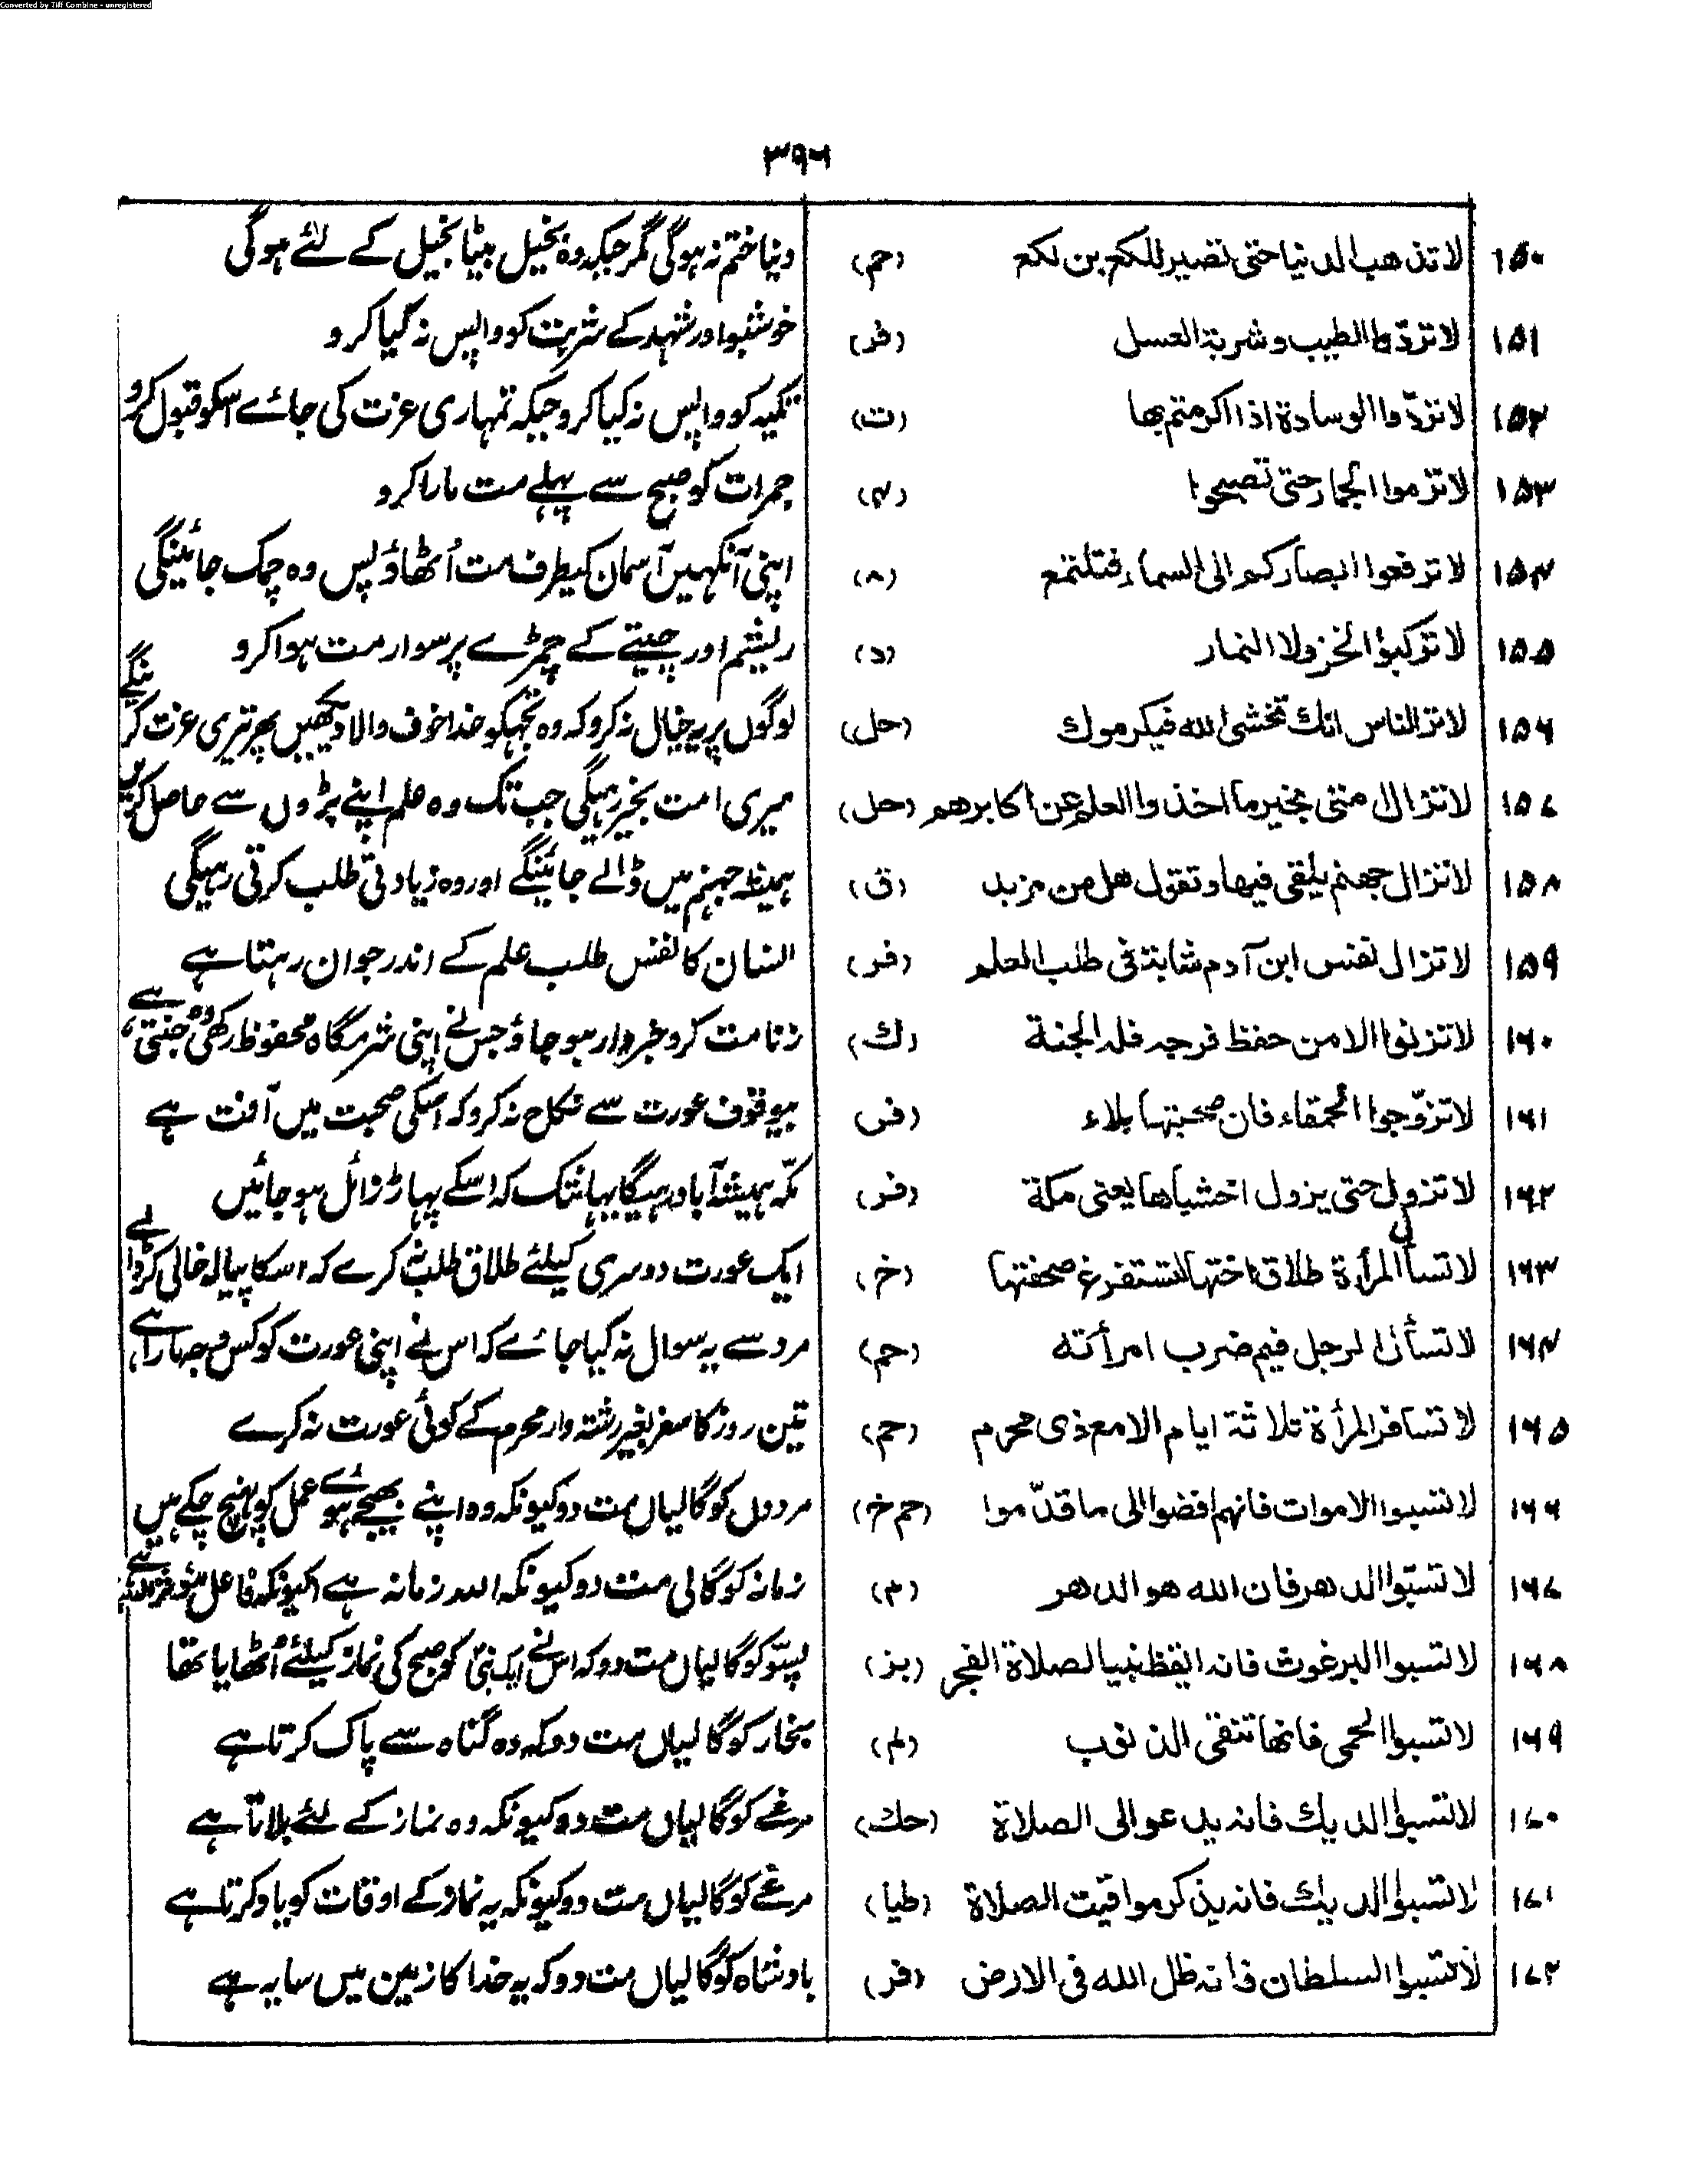 Converted by Tiff Combine - unregistered
۳۹۶
۱۵۰ لا تذهب الدنیا حتی تصیر للکع بن لکع (حم) دنیا ختم نہ ہوگی مگر جبکہ وہ بخیل بیٹا بخیل کے لئے ہوگی
۱۵۱ لا تردّوا الطیب وشربة العسل (فر) خوشبو اور شہد کے شربت کو واپس نہ کیا کرو
۱۵۲ لا تردّوا الوسادة اذا اکرمتم بها (ت) تکیہ کو واپس نہ کیا کرو جبکہ تمہاری عزت کی جائے اسکو قبول کرو
۱۵۳ لا ترموا الجمار حتی تصبحوا جمرات کو صبح سے پہلے مت مارا کرو
۱۵۴ لا ترفعوا ابصارکم الی السماء فتلتمع (۸) اپنی آنکہیں آسمان کیطرف مت اُٹھاؤ پس وہ چمک جائینگی
۱۵۵ لا ترکبوا الخز ولا النمار (د) ریشم اور چیتے کے چمڑے پر سوار مت ہوا کرو
۱۵۶ لا تر الناس انک تخشی الله فیکرموک (حل) لوگوں پر یہ خیال نہ کرو کہ وہ تجہکو خدا خوف والا دیکھیں پھر تیری عزت کرینگے
۱۵۷ لا تزال امتی بخیر ما اخذوا العلم عن اکابرهم (حل) میری امت بخیر رہیگی جب تک وہ علم اپنے بڑوں سے حاصل کریں
۱۵۸ لا تزال جهنم یلقی فیها وتقول هل من مزید (ق) ہمیشہ جہنم میں ڈالے جائینگے اور وہ زیادتی طلب کرتی رہیگی
۱۵۹ لا تزال نفس ابن آدم شابة فی طلب العلم (فر) انسان کا نفس طلب علم کے اندر جوان رہتا ہے
۱۶۰ لا تزنوا الا من حفظ فرجه فله الجنة (ك) زنا مت کرو خبردار ہو جاؤ جس نے اپنی شرمگاہ محفوظ رکھی وہ جنتی ہے
۱۶۱ لا تزوّجوا الحمقاء فان صحبتها بلاء (فر) بیوقوف عورت سے نکاح نہ کرو کہ اسکی صحبت میں آفت ہے
۱۶۲ لا تزول حتی یزول اخشباها یعنی مکة (فر) مکّہ ہمیشہ آباد رہیگا یہانتک کہ اسکے پہاڑ زائل ہو جائیں
۱۶۳ لا تسأل المرأة طلاق اختها لتستفرغ صحفتها (خ) ایک عورت دوسری کیلئے طلاق طلب نہ کرے کہ اسکا پیالہ خالی کر ڈالے
۱۶۴ لا تسأل الرجل فیم ضرب امرأته (حم) مرد سے یہ سوال نہ کیا جائے کہ اس نے اپنی عورت کو کس وجہ مارا ہے
۱۶۵ لا تسافر المرأة ثلاثة ایام الا مع ذی محرم (حم) تین روز کا سفر بغیر رشتہ دار محرم کے کوئی عورت نہ کرے
۱۶۶ لا تسبوا الاموات فانهم افضوا الی ما قدّموا (حم خ) مردوں کو گالیاں مت دو کیونکہ وہ اپنے بھیجے ہوئے عمل کو پہنچ چکے ہیں
۱۶۷ لا تسبّوا الدهر فان الله هو الدهر (م) زمانہ کو گالی مت دو کیونکہ اللہ زمانہ ہے کیونکہ فاعل
۱۶۸ لا تسبوا البرغوث فانه ایقظ نبیا لصلاة الفجر (بز) پسّو کو گالیاں مت دو کہ اس نے ایک نبی کو صبح کی نماز کیلئے اُٹھایا تھا
۱۶۹ لا تسبوا الحمی فانها تنفی الذنوب بخار کو گالیاں مت دو کہ وہ گناہ سے پاک کرتا ہے
۱۷۰ لا تسبوا الدیک فانه یدعو الی الصلاة (حك) مرغے کو گالیاں مت دو کیونکہ وہ نماز کے لئے بلاتا ہے
۱۷۱ لا تسبوا الدیک فانه یذکر مواقیت الصلاة (طیا) مرغے کو گالیاں مت دو کیونکہ یہ نماز کے اوقات کو یاد کرتا ہے
۱۷۲ لا تسبوا السلطان فانه ظل الله فی الارض (فر) بادشاہ کو گالیاں مت دو کہ یہ خدا کا زمین میں سایہ ہے